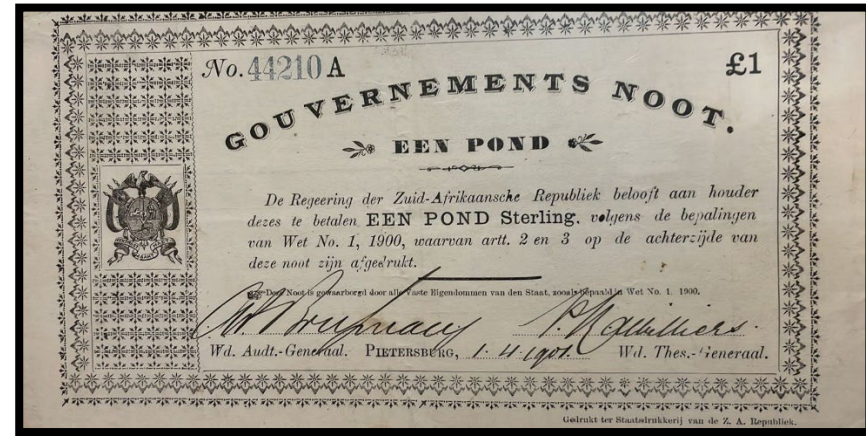 No. 44210 A £1
GOUVERNEMENTS NOOT.
EEN POND
De Regeering der Zuid-Afrikaansche Republiek belooft aan houder
dezes te betalen EEN POND Sterling, volgens de bepalingen
van Wet No. 1, 1900, waarvan artt. 2 en 3 op de achterzijde van
deze noot zijn afgedrukt.
Deze Noot is gewaarborgd door alle Vaste Eigendommen van den Staat, zooals bepaald in Wet No. 1. 1900.
Wd. Audt.-Generaal. PIETERSBURG, 1. 4. 1901. Wd. Thes.-Generaal.
Gedrukt ter Staatsdrukkerij van de Z. A. Republiek.